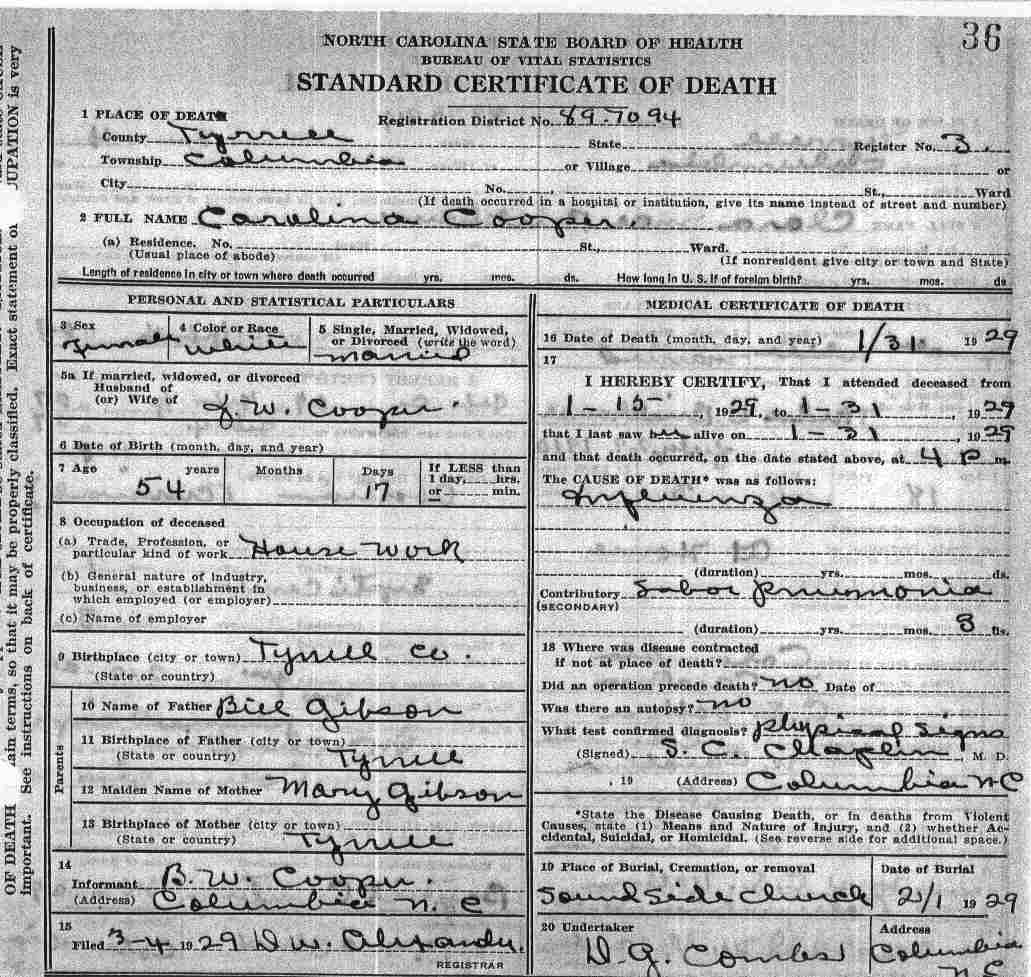 36
NORTH CAROLINA STATE BOARD OF HEALTH
BUREAU OF VITAL STATISTICS
STANDARD CERTIFICATE OF DEATH
1 PLACE OF DEATH
Registration District No. 89-7094
County Tyrrell State Register No. 3.
Township Columbia or Village or
City No. St., Ward
(If death occurred in a hospital or institution, give its name instead of street and number)
2 FULL NAME Carolina Cooper
(a) Residence. No. St., Ward.
(Usual place of abode) (If nonresident give city or town and State)
Length of residence in city or town where death occurred yrs. mos. ds. How long in U. S. if of foreign birth? yrs. mos. ds
PERSONAL AND STATISTICAL PARTICULARS
3 Sex 4 Color or Race 5 Single, Married, Widowed,
or Divorced (write the word)
Female White Married
5a If married, widowed, or divorced
Husband of
(or) Wife of J. W. Cooper.
6 Date of Birth (month, day, and year)
7 Age years Months Days If LESS than
1 day, hrs.
or min.
54 17
8 Occupation of deceased
(a) Trade, Profession, or
particular kind of work House Work
(b) General nature of industry,
business, or establishment in
which employed (or employer)
(c) Name of employer
9 Birthplace (city or town) Tyrrell Co.
(State or country)
Parents
10 Name of Father Bill Gibson
11 Birthplace of Father (city or town)
(State or country) Tyrrell
12 Maiden Name of Mother Mary Gibson
13 Birthplace of Mother (city or town)
(State or country) Tyrrell
14
Informant B. W. Cooper.
(Address) Columbia N. C
15
Filed 3-4 1929 D W.
REGISTRAR
MEDICAL CERTIFICATE OF DEATH
16 Date of Death (month, day, and year) 1/31 1929
17
I HEREBY CERTIFY, That I attended deceased from
1-15, 1929, to 1-31, 1929
that I last saw her alive on 1-31, 1929
and that death occurred, on the date stated above, at 4 P m.
The CAUSE OF DEATH* was as follows:
Influenza
(duration) yrs. mos. ds.
Contributory Lobar pneumonia
(SECONDARY)
(duration) yrs. mos. 8 ds.
18 Where was disease contracted
if not at place of death?
Did an operation precede death? no Date of
Was there an autopsy? no
What test confirmed diagnosis? physical signs
(Signed) S. C. Chaplin, M. D.
, 19 (Address) Columbia N C
*State the Disease Causing Death, or in deaths from Violent
Causes, state (1) Means and Nature of Injury, and (2) whether Ac-
cidental, Suicidal, or Homicidal. (See reverse side for additional space.)
19 Place of Burial, Cremation, or removal Date of Burial
Sound Side Church 2/1 1929
20 Undertaker Address
D. G. Combs Columbia
OF DEATH ain terms, so that it may be properly classified. Exact statement of UPATION is very
important. See instructions on back of certificate.